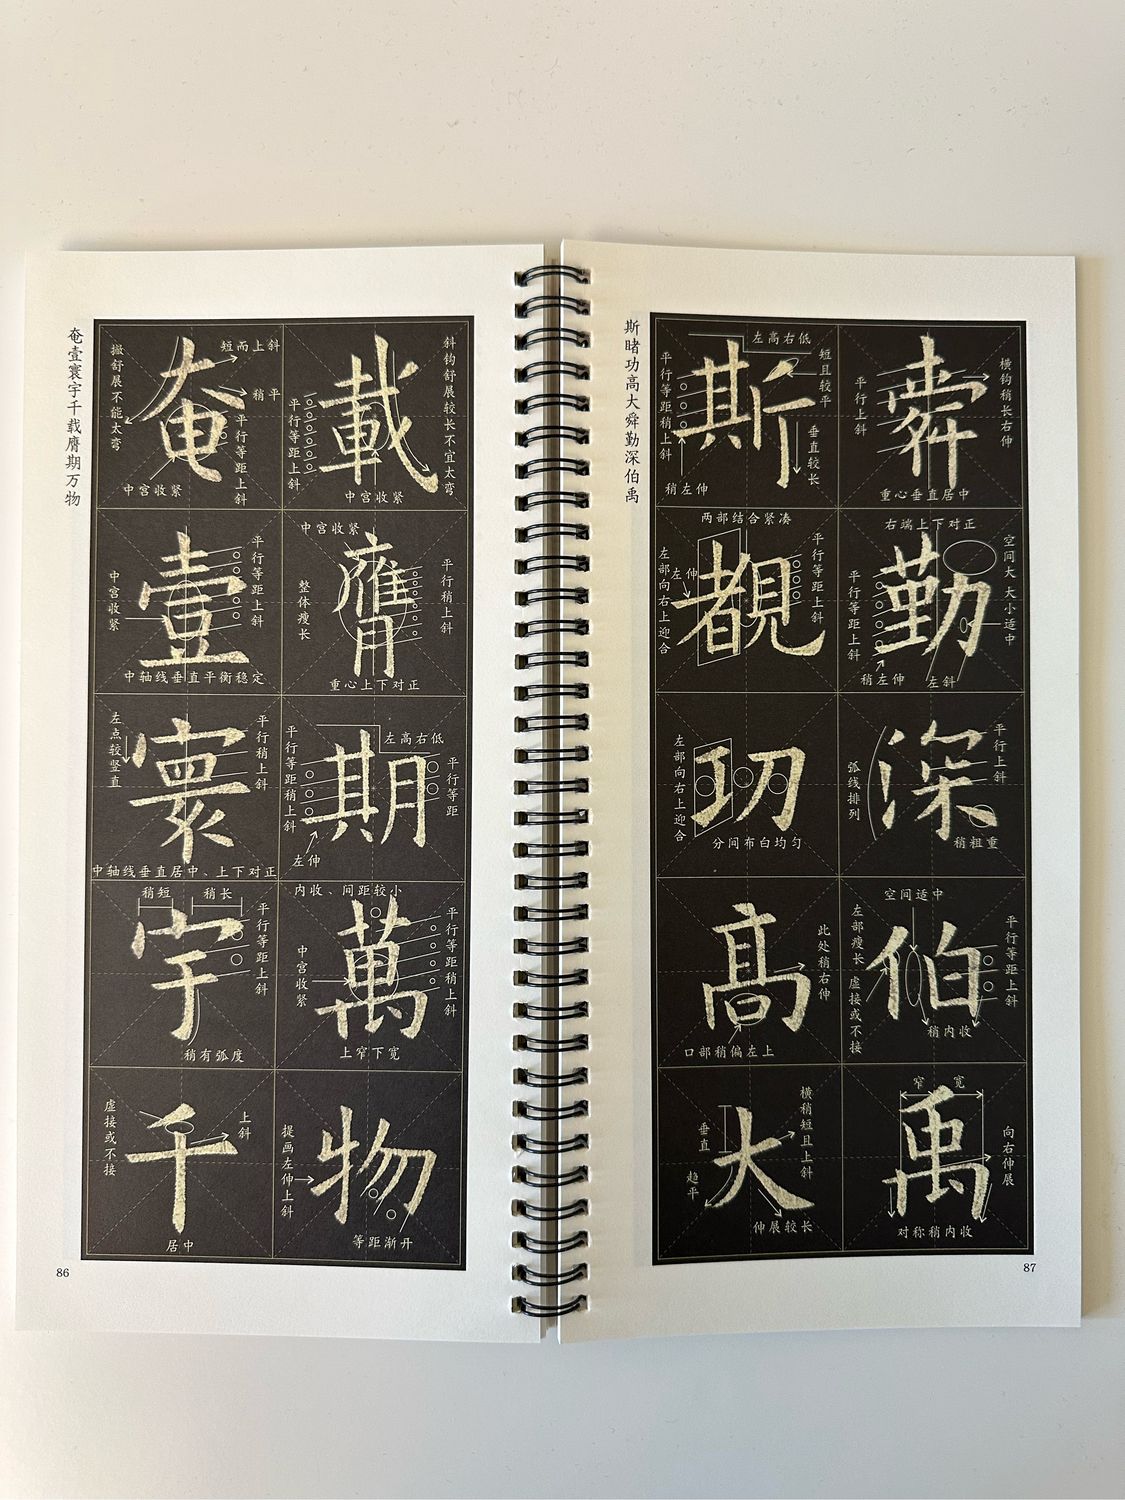 奄壹寰宇千载膺期万物
奄
撇舒展不能太弯
短而上斜
稍平
平行等距上斜
中宫收紧
壹
中宫收紧
平行等距上斜
中轴线垂直平衡稳定
寰
左点较竖直
平行稍上斜
中轴线垂直居中、上下对正
宇
稍短
稍长
平行等距上斜
稍有弧度
千
虚接或不接
上斜
居中
載
斜钩舒展较长不宜太弯
平行等距上斜
中宫收紧
膺
中宫收紧
整体瘦长
平行稍上斜
重心上下对正
期
平行等距稍上斜
左高右低
平行等距
左伸
萬
内收、间距较小
中宫收紧
平行等距稍上斜
上窄下宽
物
提画左伸上斜
等距渐开
86
斯睹功高大舜勤深伯禹
斯
平行等距稍上斜
左高右低
短且较平
垂直较长
稍左伸
覩
两部结合紧凑
左部向右上迎合
左伸
平行等距上斜
功
左部向右上迎合
分间布白均匀
高
此处稍右伸
口部稍偏左上
大
垂直
横稍短且上斜
趋平
伸展较长
舜
平行上斜
横钩稍长右伸
重心垂直居中
勤
右端上下对正
空间大
大小适中
平行等距上斜
稍左伸
左斜
深
弧线排列
平行上斜
稍粗重
伯
空间适中
左部瘦长
虚接或不接
平行等距上斜
稍内收
禹
窄
宽
向右伸展
对称稍内收
87